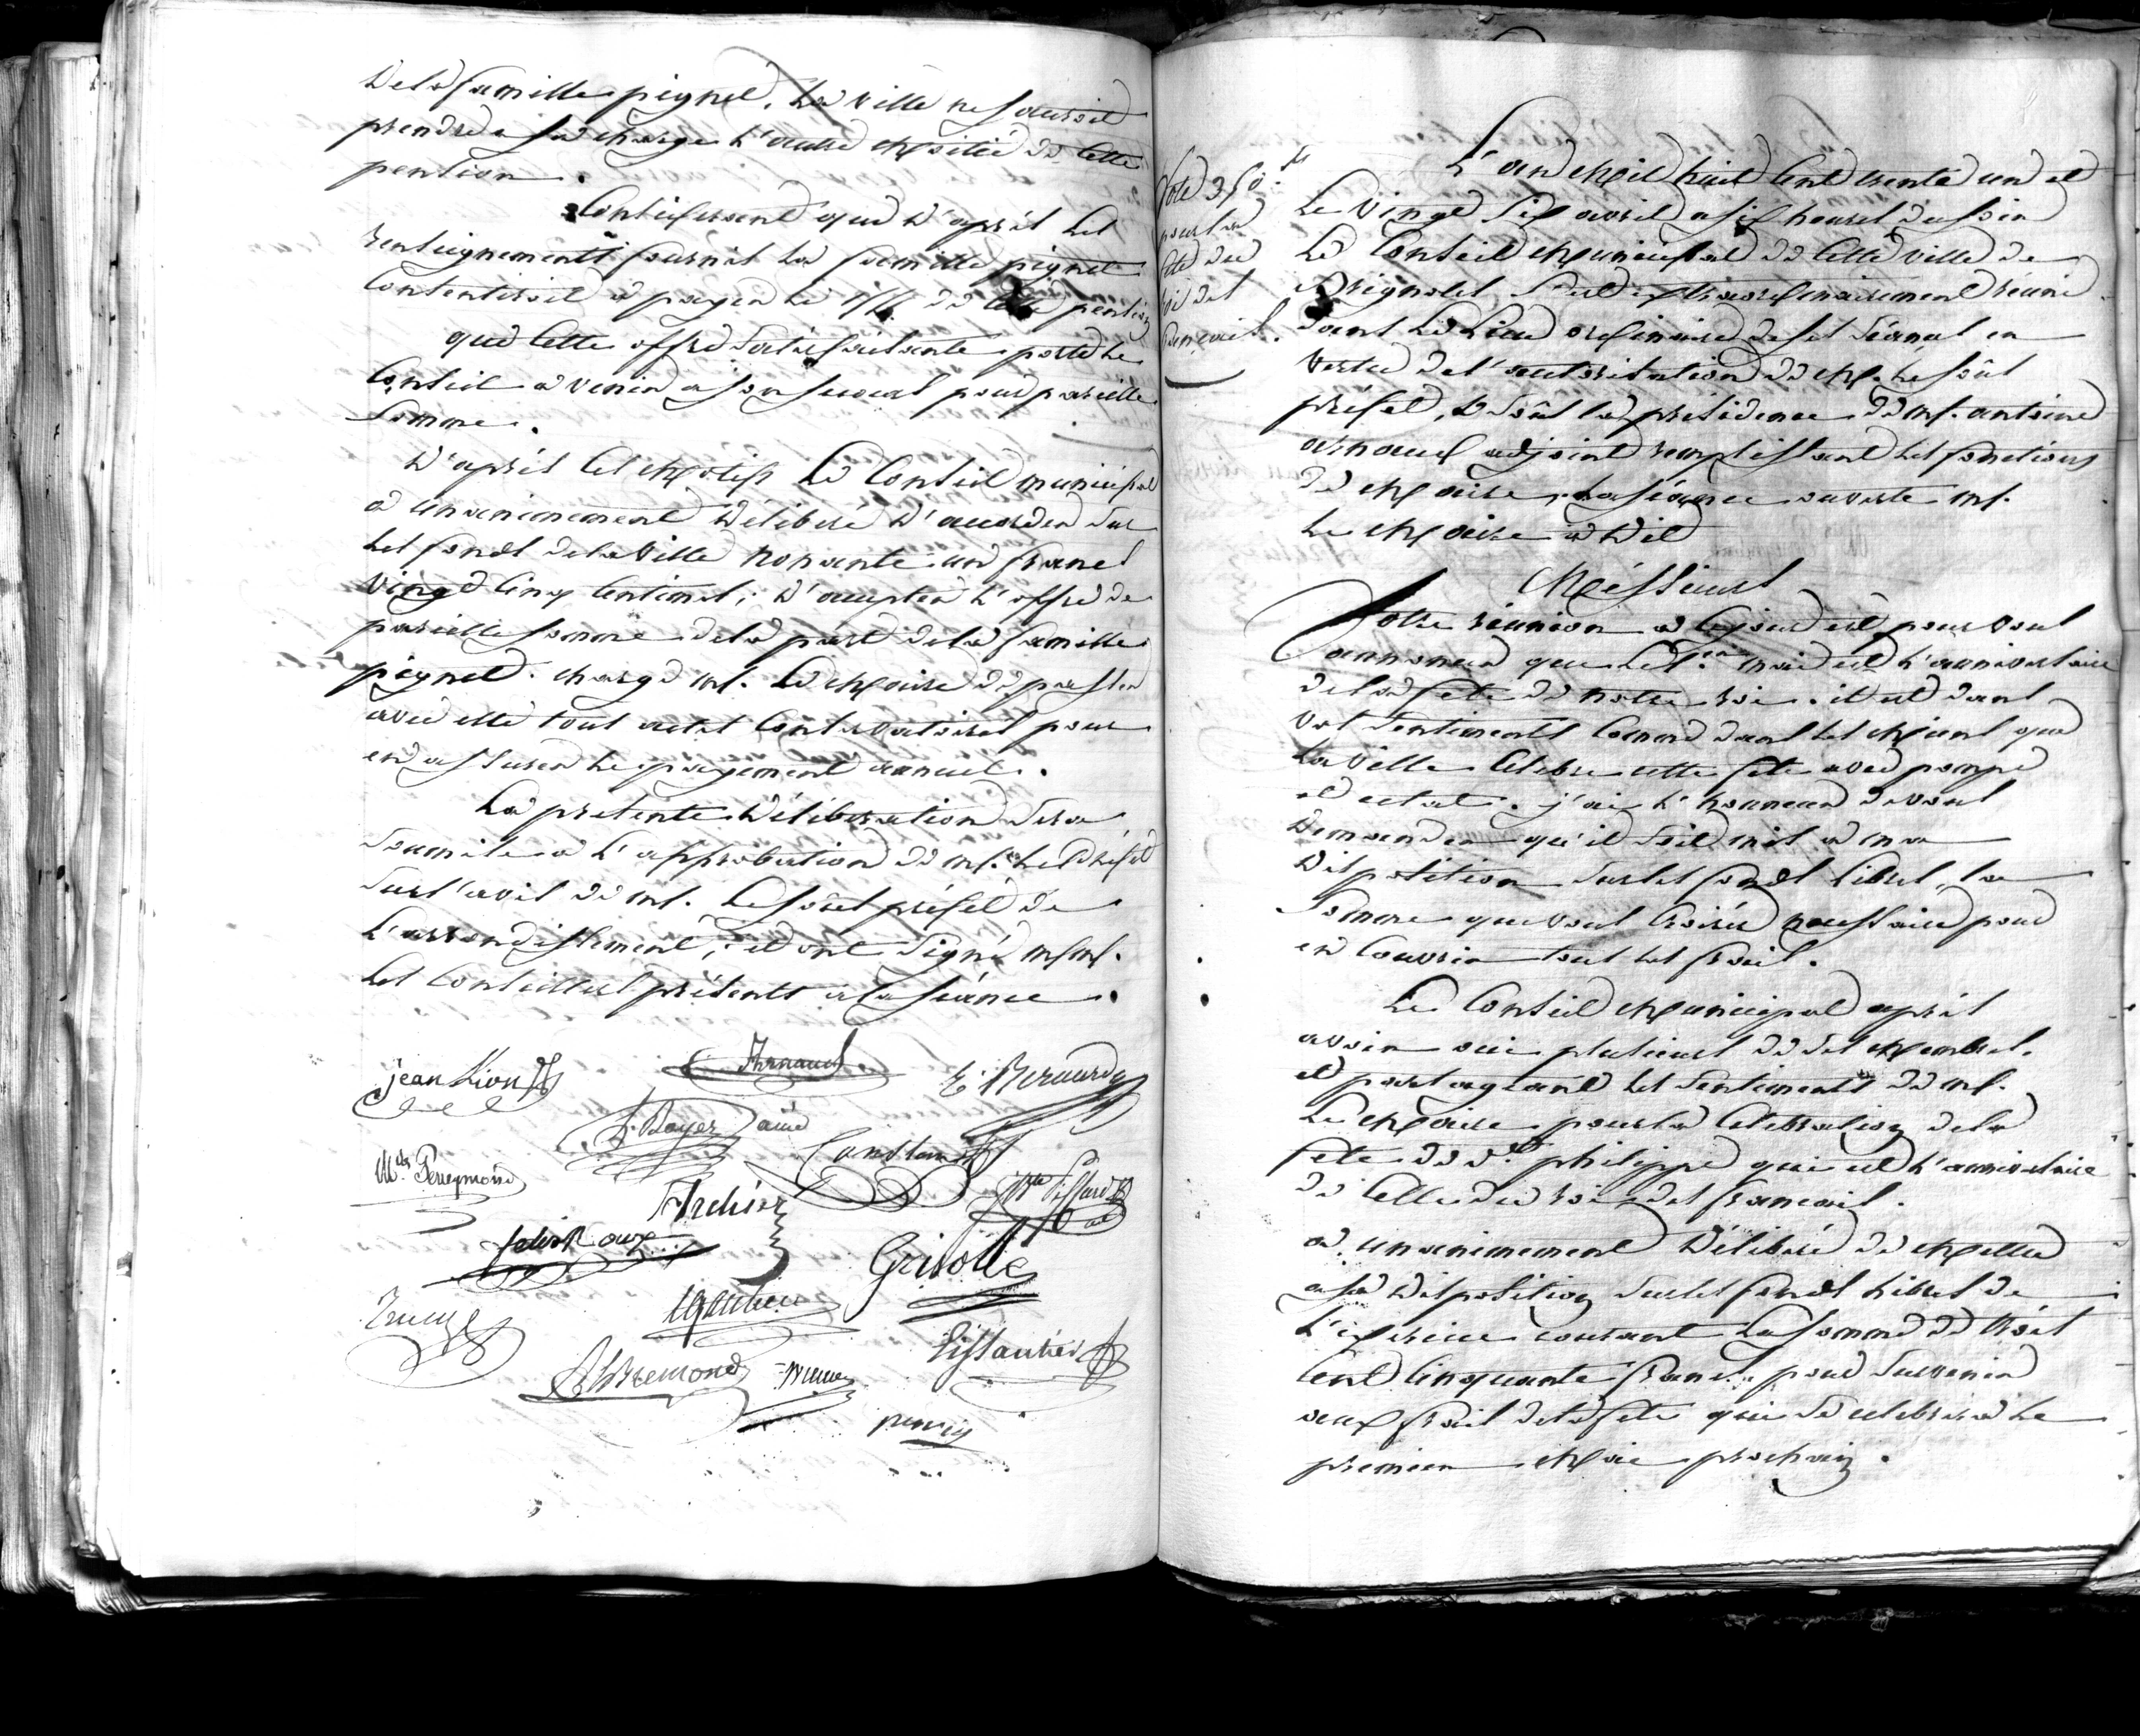 De la famille pignol, La ville ne sauroit
prendre a sa charge L'autre Moitié de cette
pention.
Considerant que D'après les
renseignements fournis La famille pignol
Consentiroit a payer Le 1/4 de cette pention
que Cette offre Satisfaisante porte Le
Conseil a venir a son secours pour pareille
Somme.
D'après Ces Motifs Le Conseil municipal
a unanimement Délibéré D'accorder sur
Les fonds de la Ville nonante un francs
Vingt Cinq Centimes; D'accepter L'offre de
pareille somme de la part de la famille
pignol. charge mr. Le Maire de passer
avec elle tout actes Conservatoires pour
en assurer Le payement annuel.
La presente Délibération Sera
Soumise a L'approbation de mr. Le Préfet
Sur L'avis de mr. Le Sous préfet de
L'arrondissement; et ont Signé mrs.
Les Conseillers présents a La séance.
jean Lion
Arnaud
E. Berardy
h. Boyer ainé
Constans
Mds. Perreymond
Archier
felix Roux
Grisolle
Gautier
Tissautier
A. Bremond
Vote 350 fs
pour La
fête du
roi des
francais.
L'an Mil huit Cent trente un et
Le Vingt Six avril a six heures du soir
Le Conseil Municipal de Cette Ville de
Brignoles S'est extraordinairement réuni
dans Le Lieu ordinaire de ses séances en
Vertu de L'autorisation de Mr. Le Sous
préfet, & sous La présidence de mr. antoine
arnaud adjoint remplissant Les fonctions
de Maire, La séance ouverte mr.
Le Maire a Dit
Méssieurs
Votre réunion a Cejourd'ui pour vous
annoncer que Le 1er. mai est L'anniversaire
de la fête de notre roi. il est dans
Vos Sentiments Comme dans Les Miens que
La Ville Celebre cette fête avec pompe
et eclat. j'ai L'honneur de vous
Demander qu'il soit mis a ma
Disposition sur Les fonds Libres, La
Somme que vous Croirés necessaire pour
en Couvrir tous Les frais.
Le Conseil Municipal après
avoir oui plusieurs de ses Membres.
et partageant Les Sentiments de mr.
Le Maire pour La Celebration de la
fete de St. philippe qui est L'anniversaire
de Celle du roi des francais.
a unanimement Délibéré de Mettre
a sa Disposition sur Les fonds Libres de
L'exercice courant La somme de trois
Cent Cinquante francs pour Subvenir
aux frais de la fete qui se celebrera Le
premier Mai prochain.